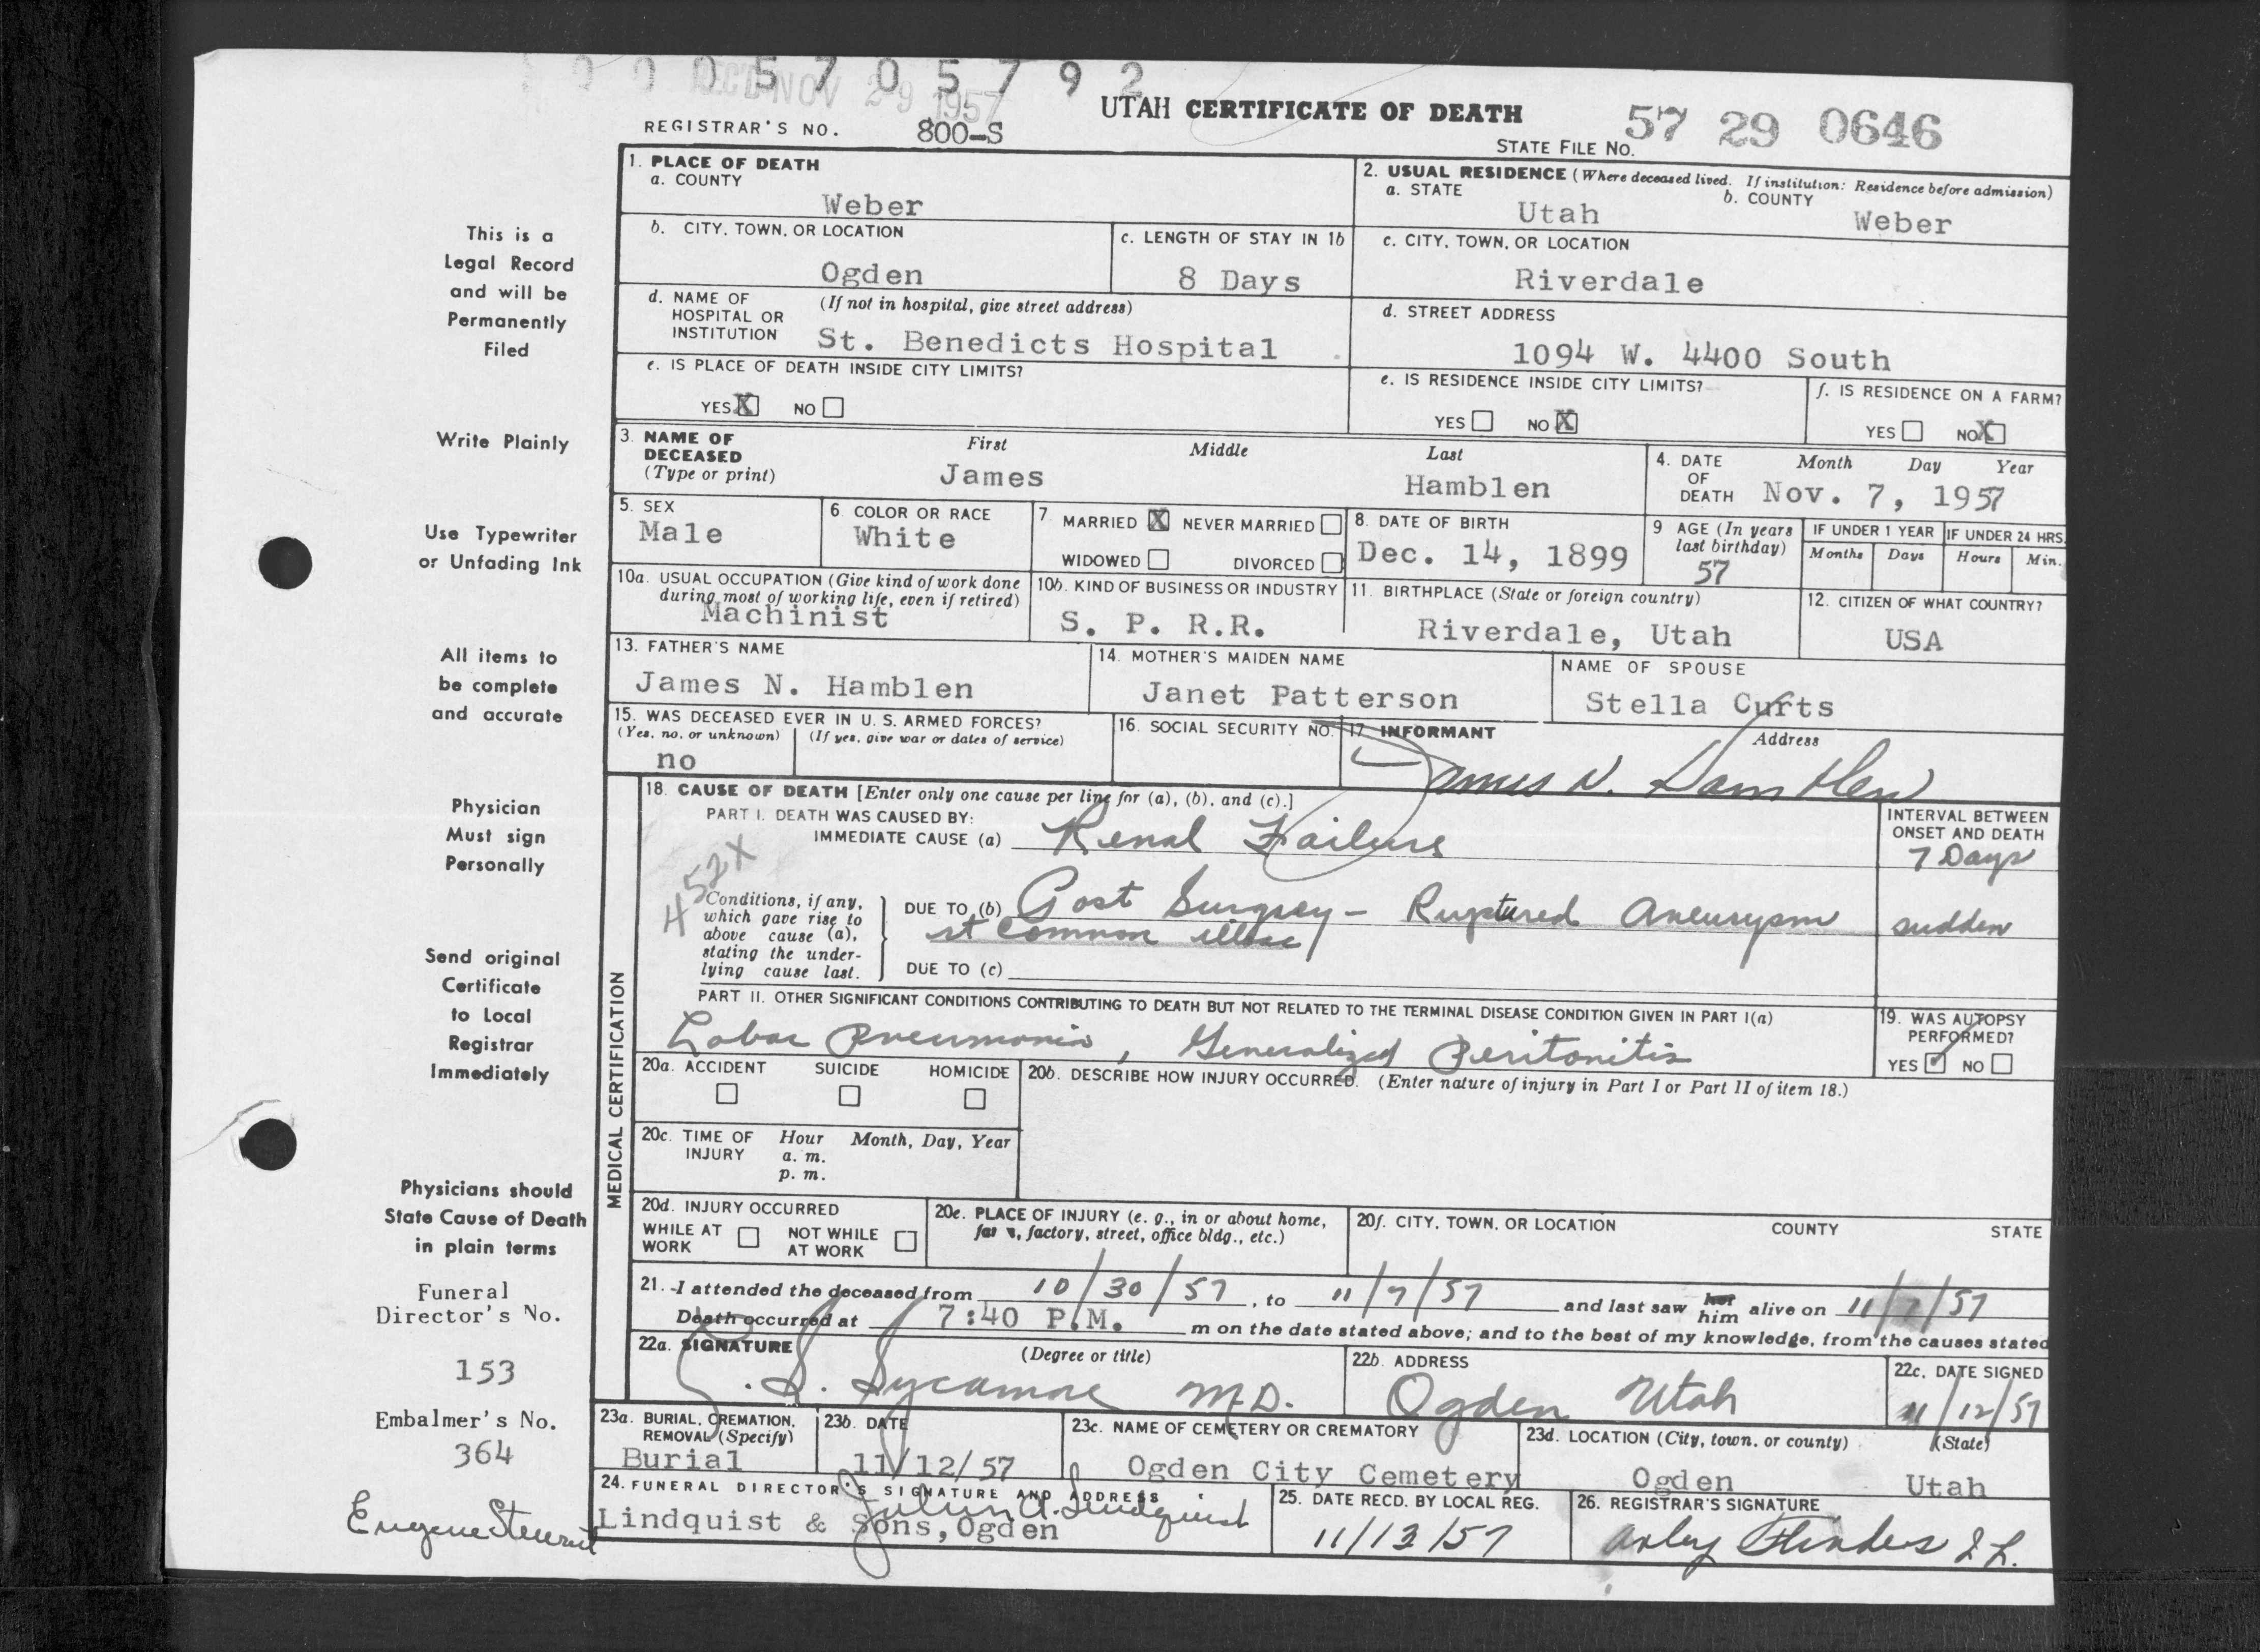 0 0 0 5 7 0 5 7 9 2
REC'D NOV 29 1957
UTAH CERTIFICATE OF DEATH
REGISTRAR'S NO. 800-S
STATE FILE NO. 57 29 0646
1. PLACE OF DEATH
a. COUNTY
Weber
2. USUAL RESIDENCE (Where deceased lived. If institution: Residence before admission)
a. STATE
Utah
b. COUNTY
Weber
b. CITY, TOWN, OR LOCATION
Ogden
c. LENGTH OF STAY IN 1b
8 Days
c. CITY, TOWN, OR LOCATION
Riverdale
d. NAME OF HOSPITAL OR INSTITUTION
(If not in hospital, give street address)
St. Benedicts Hospital
d. STREET ADDRESS
1094 W. 4400 South
e. IS PLACE OF DEATH INSIDE CITY LIMITS?
YES X NO
e. IS RESIDENCE INSIDE CITY LIMITS?
YES NO X
f. IS RESIDENCE ON A FARM?
YES NO X
3. NAME OF DECEASED (Type or print)
First Middle Last
James Hamblen
4. DATE OF DEATH
Month Day Year
Nov. 7, 1957
5. SEX
Male
6. COLOR OR RACE
White
7. MARRIED X NEVER MARRIED
WIDOWED DIVORCED
8. DATE OF BIRTH
Dec. 14, 1899
9 AGE (In years last birthday)
57
IF UNDER 1 YEAR
Months Days
IF UNDER 24 HRS.
Hours Min.
10a. USUAL OCCUPATION (Give kind of work done during most of working life, even if retired)
Machinist
10b. KIND OF BUSINESS OR INDUSTRY
S. P. R.R.
11. BIRTHPLACE (State or foreign country)
Riverdale, Utah
12. CITIZEN OF WHAT COUNTRY?
USA
13. FATHER'S NAME
James N. Hamblen
14. MOTHER'S MAIDEN NAME
Janet Patterson
NAME OF SPOUSE
Stella Curts
15. WAS DECEASED EVER IN U. S. ARMED FORCES?
(Yes, no, or unknown) (If yes, give war or dates of service)
no
16. SOCIAL SECURITY NO.
17. INFORMANT Address
James N. Hamblen
MEDICAL CERTIFICATION
18. CAUSE OF DEATH [Enter only one cause per line for (a), (b), and (c).]
PART I. DEATH WAS CAUSED BY:
IMMEDIATE CAUSE (a) Renal Failure
INTERVAL BETWEEN ONSET AND DEATH
7 Days
452X
Conditions, if any, which gave rise to above cause (a), stating the underlying cause last.
DUE TO (b) Post Surgery - Ruptured Aneurysm
sudden
common
DUE TO (c)
PART II. OTHER SIGNIFICANT CONDITIONS CONTRIBUTING TO DEATH BUT NOT RELATED TO THE TERMINAL DISEASE CONDITION GIVEN IN PART I(a)
Lobar Pneumonia, Generalized Peritonitis
19. WAS AUTOPSY PERFORMED?
YES ✓ NO
20a. ACCIDENT SUICIDE HOMICIDE
20b. DESCRIBE HOW INJURY OCCURRED. (Enter nature of injury in Part I or Part II of item 18.)
20c. TIME OF INJURY
Hour Month, Day, Year
a. m.
p. m.
20d. INJURY OCCURRED
WHILE AT WORK NOT WHILE AT WORK
20e. PLACE OF INJURY (e. g., in or about home, farm, factory, street, office bldg., etc.)
20f. CITY, TOWN, OR LOCATION COUNTY STATE
21. I attended the deceased from 10/30/57, to 11/7/57 and last saw her him alive on 11/7/57
Death occurred at 7:40 P.M. m on the date stated above; and to the best of my knowledge, from the causes stated
22a. SIGNATURE (Degree or title)
Sycamore M.D.
22b. ADDRESS
Ogden Utah
22c. DATE SIGNED
11/12/57
23a. BURIAL, CREMATION, REMOVAL (Specify)
Burial
23b. DATE
11/12/57
23c. NAME OF CEMETERY OR CREMATORY
Ogden City Cemetery
23d. LOCATION (City, town, or county) (State)
Ogden Utah
24. FUNERAL DIRECTOR'S SIGNATURE AND ADDRESS
Lindquist & Sons, Ogden
Lindquist
25. DATE RECD. BY LOCAL REG.
11/13/57
26. REGISTRAR'S SIGNATURE
Flinders
This is a
Legal Record
and will be
Permanently
Filed
Write Plainly
Use Typewriter
or Unfading Ink
All items to
be complete
and accurate
Physician
Must sign
Personally
Send original
Certificate
to Local
Registrar
Immediately
Physicians should
State Cause of Death
in plain terms
Funeral
Director's No.
153
Embalmer's No.
364
Eugene